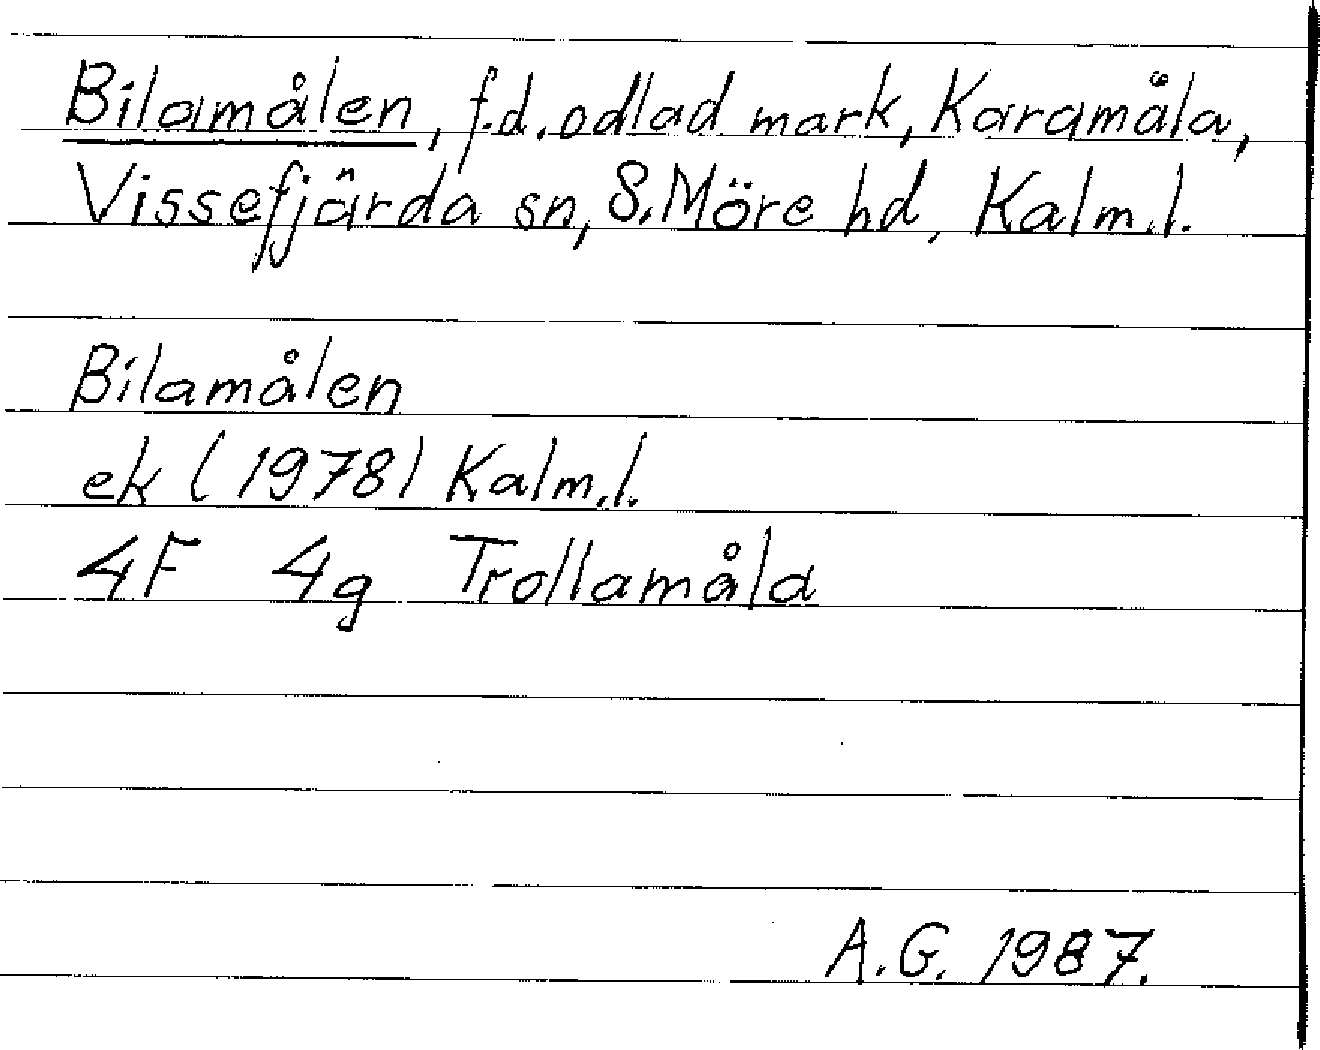 Bilamålen, f.d. odlad mark, Karamåla,
Vissefjärda sn, S. Möre hd, Kalm. l.
Bilamålen
ek (1978) Kalm. l.
4F 4g Trollamåla
A.G. 1987.